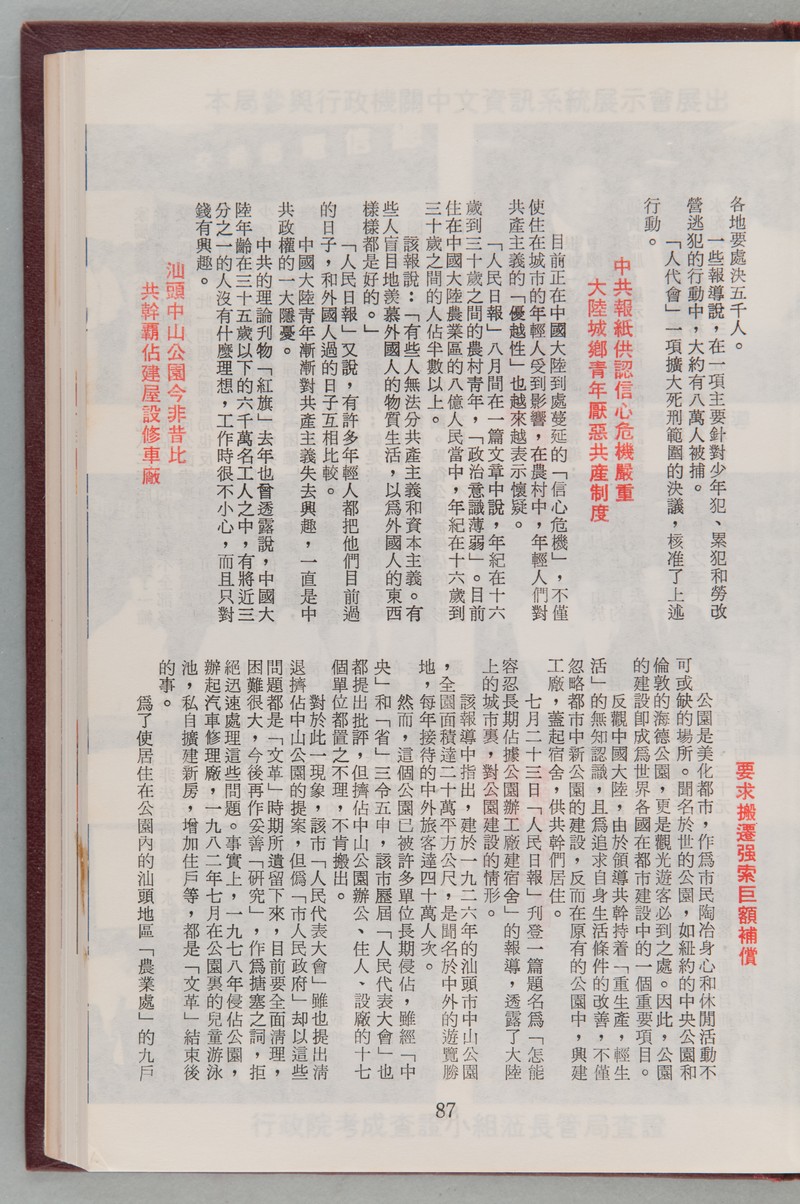 各地要處決五千人。
一些報導說，在一項主要針對少年犯、累犯和勞改
營逃犯的行動中，大約有八萬人被捕。
「人代會」一項擴大死刑範圍的決議，核准了上述
行動。
中共報紙供認信心危機嚴重
大陸城鄉青年厭惡共產制度
目前正在中國大陸到處蔓延的「信心危機」，不僅
使住在城市的年輕人受到影響，在農村中，年輕人們對
共產主義的「優越性」也越來越表示懷疑。
「人民日報」八月間在一篇文章中說，年紀在十六
歲到三十歲之間的農村青年，「政治意識薄弱」。目前
住在中國大陸農業區的八億人民當中，年紀在十六歲到
三十歲之間的人佔半數以上。
該報說：「有些人無法分共產主義和資本主義。有
些人盲目地羨慕外國人的物質生活，以為外國人的東西
樣樣都是好的。」
「人民日報」又說，有許多年輕人都把他們目前過
的日子，和外國人過的日子互相比較。
中國大陸青年漸漸對共產主義失去興趣，一直是中
共政權的一大隱憂。
中共的理論刊物「紅旗」去年也曾透露說，中國大
陸年齡在三十五歲以下的六千萬名工人之中，有將近三
分之一的人沒有什麼理想，工作時很不小心，而且只對
錢有興趣。
汕頭中山公園今非昔比
共幹霸佔建屋設修車廠
要求搬遷强索巨額補償
公園是美化都市，作為市民陶冶身心和休閒活動不
可或缺的場所。聞名於世的公園，如紐約的中央公園和
倫敦的海德公園，更是觀光遊客必到之處。因此，公園
的建設卽成為世界各國在都市建設中的一個重要項目。
反觀中國大陸，由於領導共幹持着「重生產，輕生
活」的無知認識，且為追求自身生活條件的改善，不僅
忽略都市中新公園的建設，反而在原有的公園中，興建
工廠，蓋起宿舍，供共幹們居住。
七月二十三日「人民日報」刋登一篇題名為「怎能
容忍長期佔據公園辦工廠建宿舍」的報導，透露了大陸
上的城市裏，對公園建設的情形。
該報導中指出，建於一九二六年的汕頭市中山公園
，全園面積達二十萬平方公尺，是聞名於中外的遊覽勝
地，每年接待的中外旅客達四十萬人次。
然而，這個公園已被許多單位長期侵佔，雖經「中
央」和「省」三令五申，該市歷屆「人民代表大會」也
都提出批評，但擠佔中山公園辦公、住人、設廠的十七
個單位都置之不理，不肯搬出。
對於此一現象，該市「人民代表大會」雖也提出清
退擠佔中山公園的提案，但僞「市人民政府」却以這些
問題都是「文革」時期所遺留下來，目前要全面淸理，
困難很大，今後再作妥善「研究」，作爲搪塞之詞，拒
絕迅速處理這些問題。事實上，一九七八年侵佔公園，
辦起汽車修理廠，一九八二年七月在公園裏的兒童游泳
池，私自擴建新房，增加住戶等，都是「文革」結束後
的事。
為了使居住在公園內的汕頭地區「農業處」的九戶
87